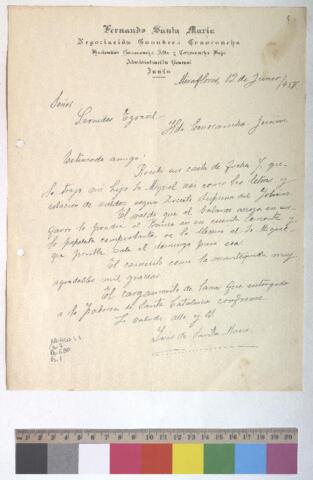 Fernando Santa María
Negociación Ganadera Conocancha
Haciendas Conocancha Alta y Conocancha Baja
Administración General
Junín
Miraflores, 12 de Junio/937
Señor
Leonidas
Hda Conocancha - Junín
Estimado amigo:
Recibí su carta de fecha 7, que
la trajo mi hijo Miguel así como las letras y
relación de sueldos, según Decreto Supremo del Gobierno
El saldo que el Balance arroja en mi
favor lo pondré al Banco en su cuenta corriente y
la papeleta comprobante se la llevará el Sr Miguel
que saldrá el domingo para esa.
El carnerito como la mantequilla muy
agradables mil gracias
El cargamento de lanas fue entregado
a la fabrica de Santa Catalina conforme.
Lo saluda atto y SS
de Santa María
1 2 3 4 5 6 7 8 9 10 11 12 13 14 15 16 17 18 19 20